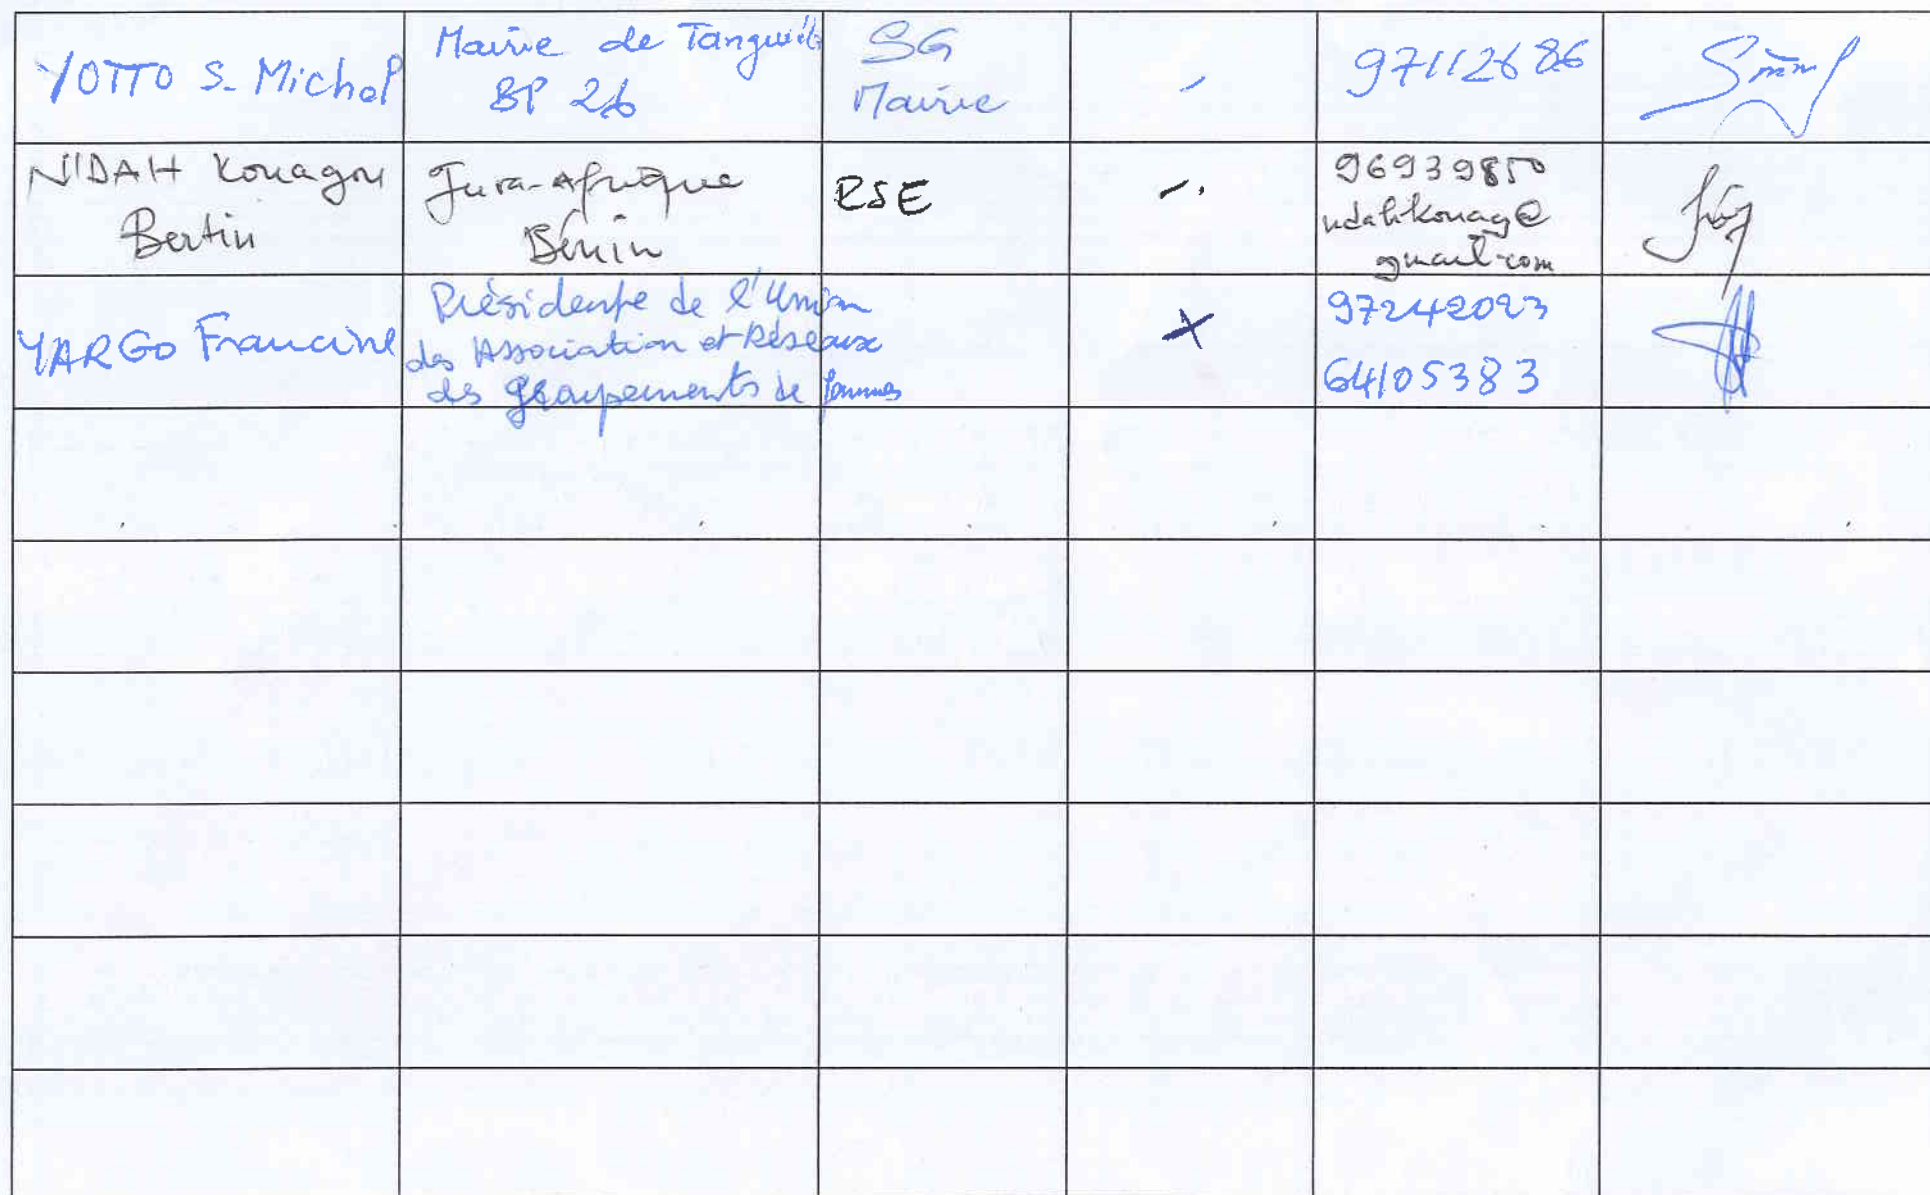 YOTTO S. Michel
Mairie de Tanguiéta
BP 26
SG
Mairie
-
97112686
N'DAH Kouagou
Bertin
Jura-Afrique
Bénin
RSE
-
96939850
ndahkouag@
gmail.com
YARGO Francine
Présidente de l'Union
des Association et Réseaux
des groupements de femmes
X
97242023
64105383